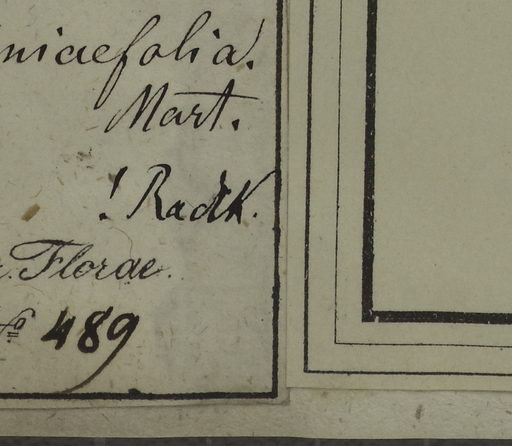 niaefolia.
Mart.
! Radlk.
r. Florae.
No 489